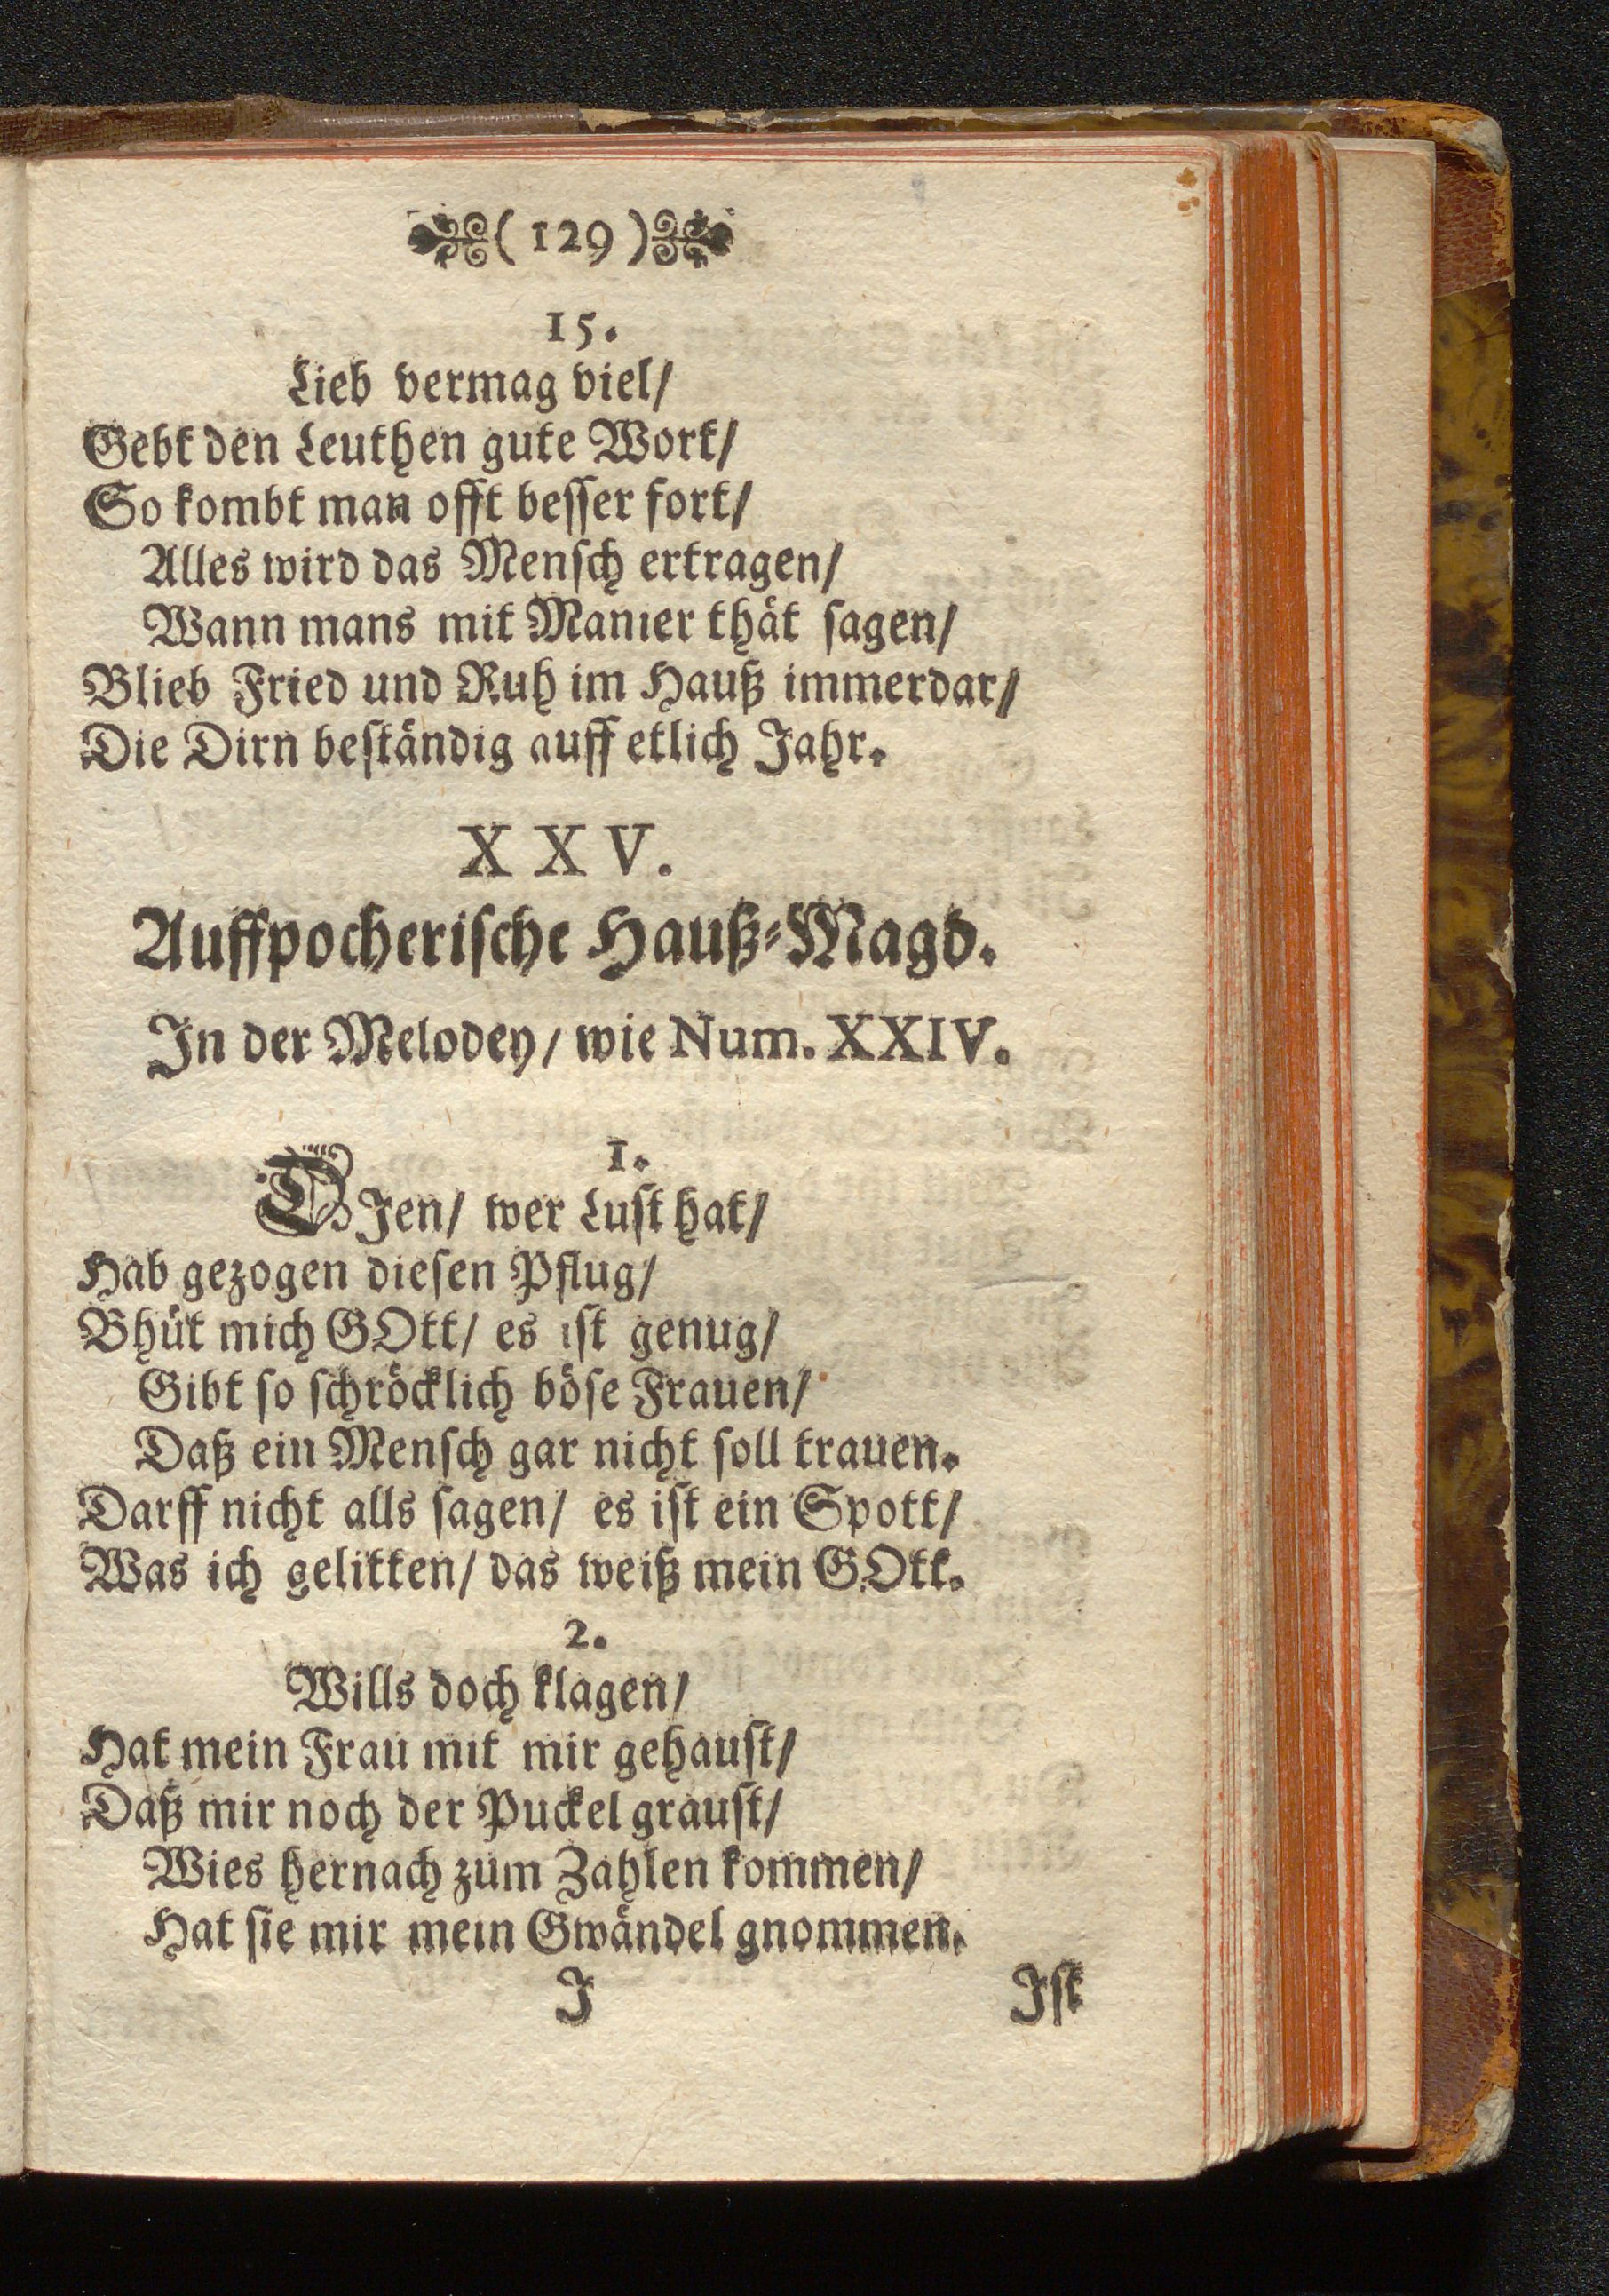 (129)
15.
Lieb vermag viel/
Gebt den Leuthen gute Wort/
So kombt man offt besser fort/
Alles wird das Mensch ertragen/
Wann mans mit Manier thät sagen/
Blieb Fried und Ruh im Hauß immerdar/
Die Dirn beständig auff etlich Jahr.
XXV.
Auffpocherische Hauß-Magd.
In der Melodey/ wie Num. XXIV.
1.
DJen/ wer Lust hat/
Hab gezogen diesen Pflug/
Bhüt mich GOtt/ es ist genug/
Gibt so schröcklich böse Frauen/
Daß ein Mensch gar nicht soll trauen.
Darff nicht alls sagen/ es ist ein Spott/
Was ich gelitten/ das weiß mein GOtt.
2.
Wills doch klagen/
Hat mein Frau mit mir gehaust/
Daß mir noch der Puckel graust/
Wies hernach zum Zahlen kommen/
Hat sie mir mein Gwändel gnommen.
J Ist